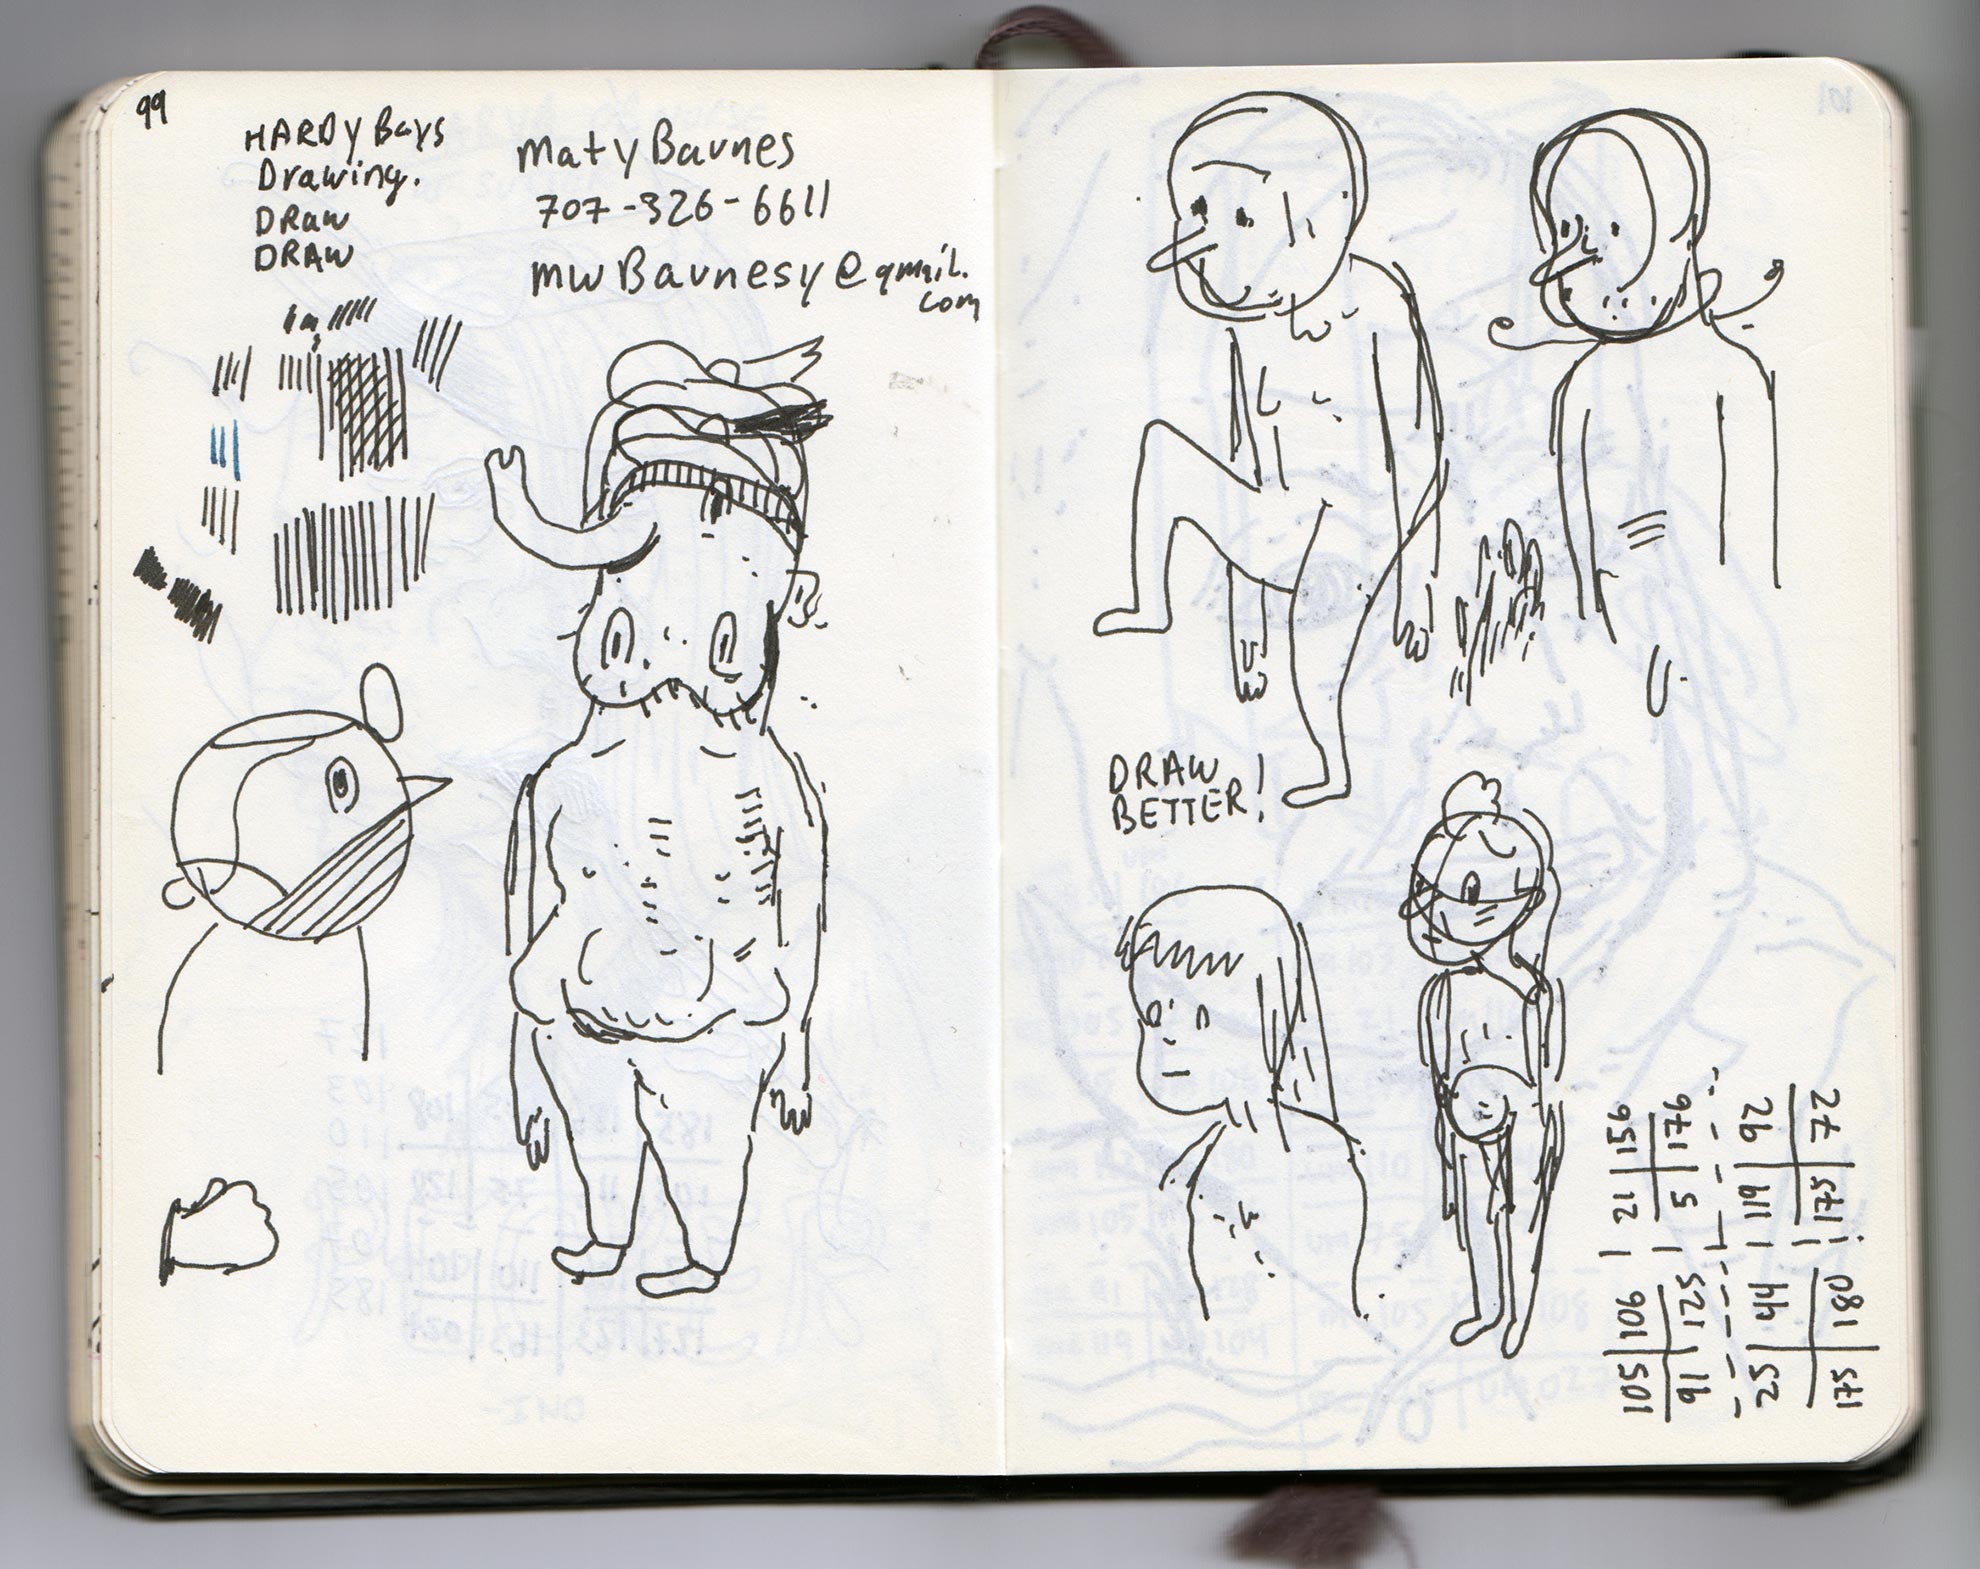 99
HARDY Boys
Drawing.
DRaw
DRAW
Maty Barnes
707-326-6611
mwBarnesy@gmail.
com
DRAW
BETTER!
105 | 106 | 21 | 156
91 | 125 | 5 | 176
25 | 44 | 119 | 26
175 | 180 | 175 | 27